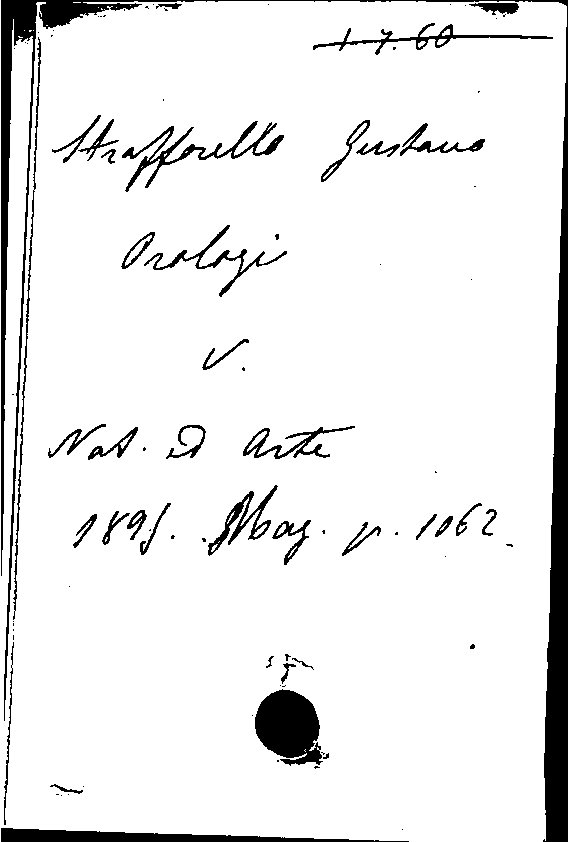 1.7.60
Strafforello Gustavo
Orologi
V.
Nat. ed Arte
1895. Mag. p. 1062.